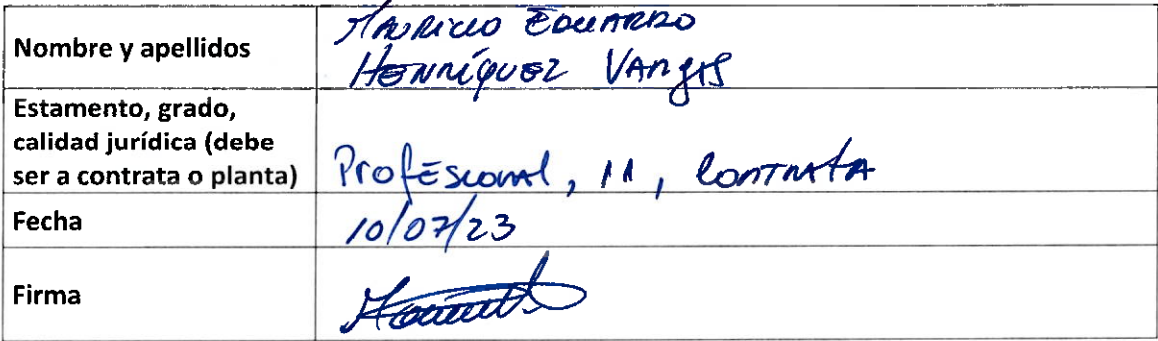 Nombre y apellidos
Mauricio Eduardo
Henríquez Vargas
Estamento, grado,
calidad jurídica (debe
ser a contrata o planta)
Profesional, 11, Contrata
Fecha
10/07/23
Firma